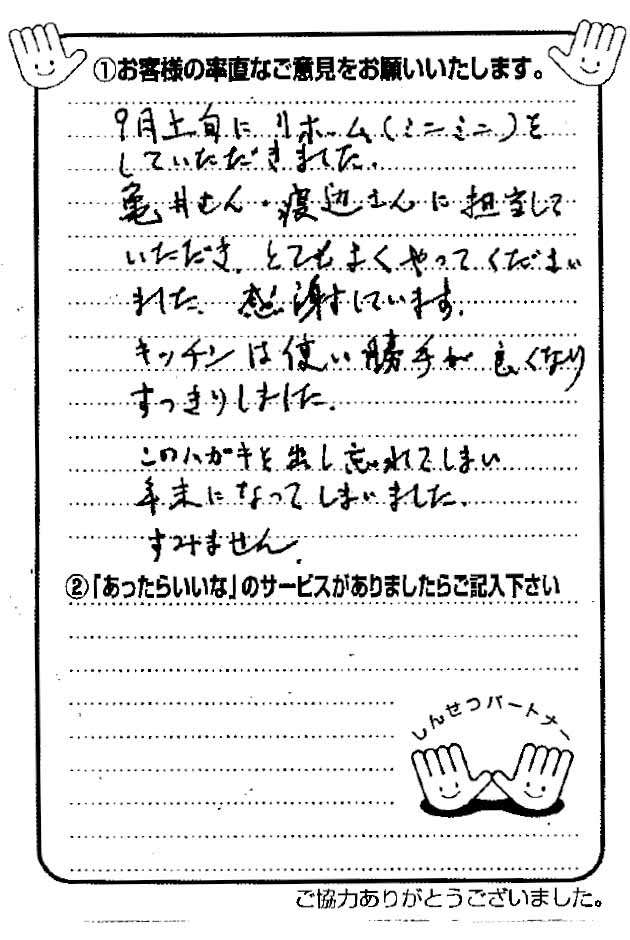 ①お客様の率直なご意見をお願いいたします。
9月上旬にリホーム(ミニミニ)を
していただきました。
亀井さん・渡辺さんに担当して
いただき、とてもよくやってください
ました。感謝しています。
キッチンは使い勝手が良くなり
すっきりしました。
このハガキを出し忘れてしまい
年末になってしまいました。
すみません。
②「あったらいいな」のサービスがありましたらご記入下さい
しんせつパートナー
ご協力ありがとうございました。